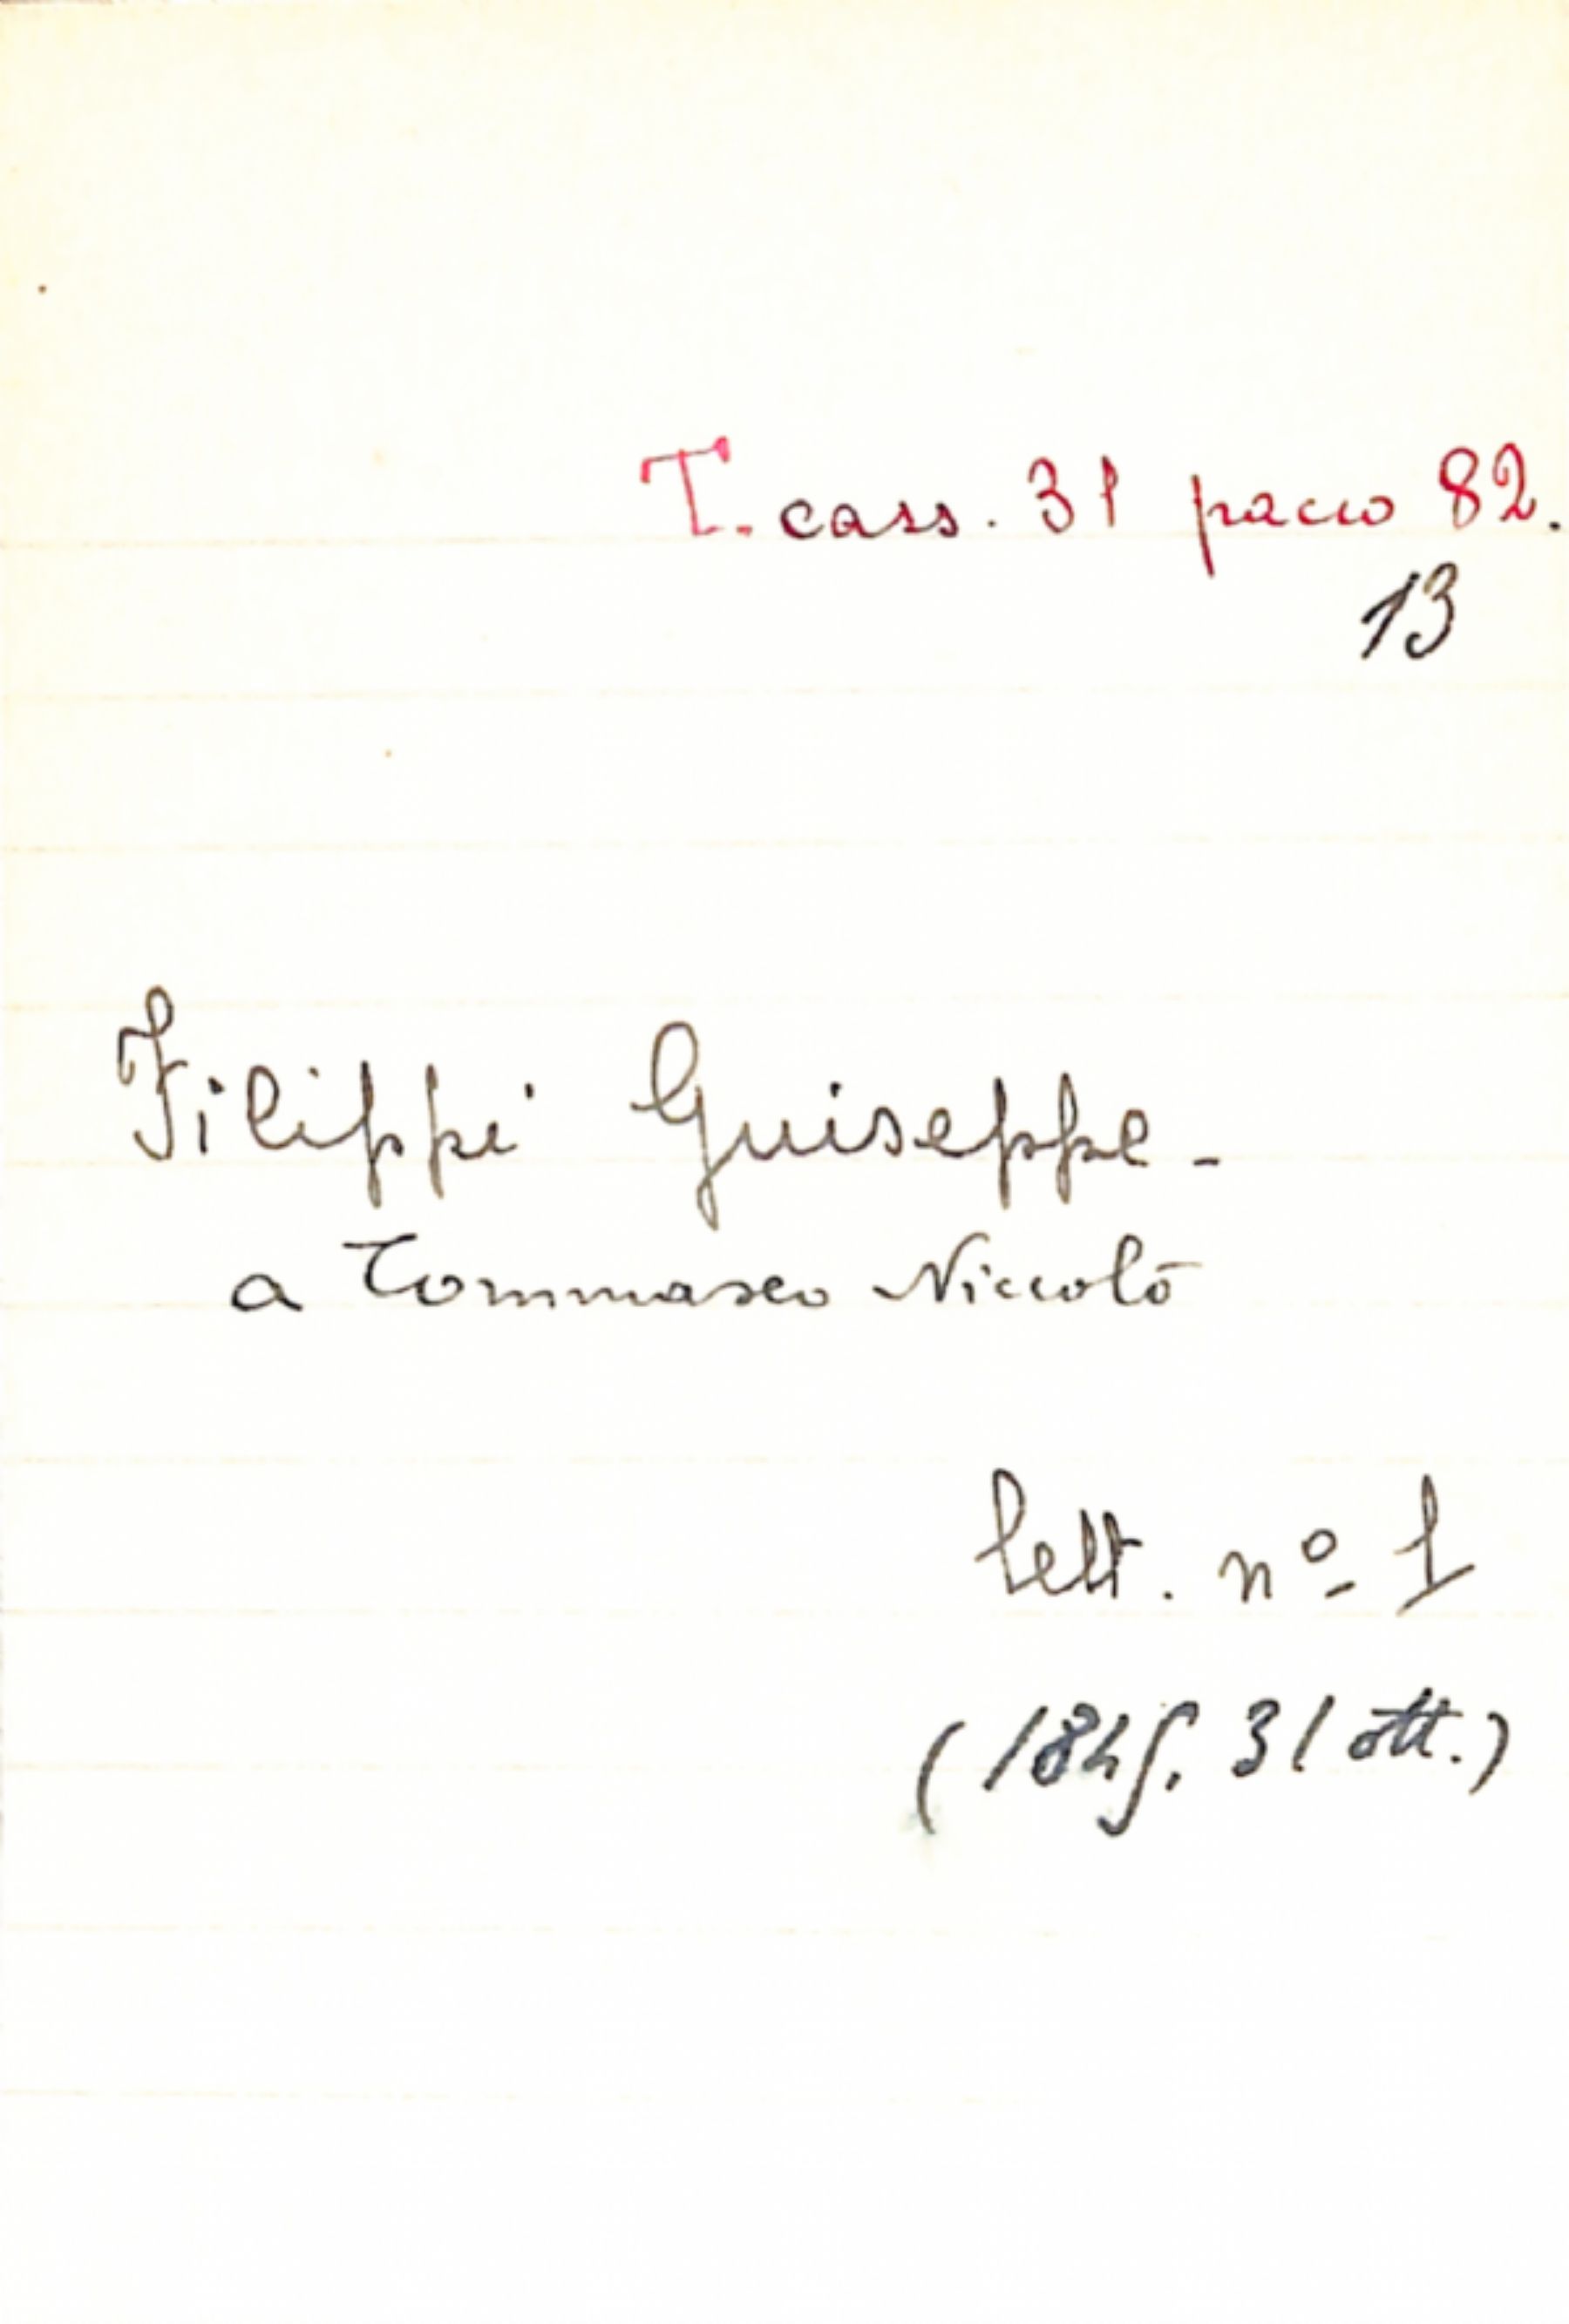 T. cass. 31 pacco 82.
13
Filippi Guiseppe -
a Tommaseo Niccolò
lett. nº 1
(1845. 31 ott.)